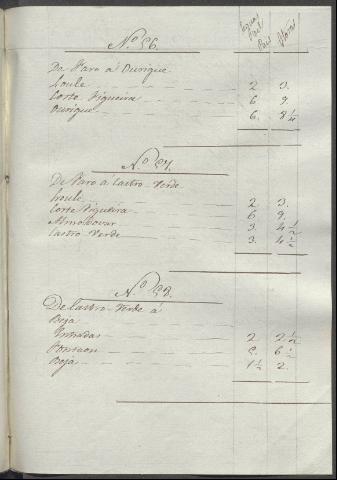 Legoas Paiz Horas
N.º 56.
De Faro à Ourique
Loule 2 3.
Corte Figueira 6 9.
Ourique 6. 8 1/4
N.º 57.
De Faro à Castro-Verde
Loule 2. 3.
Corte Figueira 6 9.
Almodovar 3. 4 1/2
Castro-Verde 3. 4 1/2
N.º 58.
De Castro-Verde à
Beja
Entradas 2 2 1/2
6 1/2
Beja 1 1/2 2.